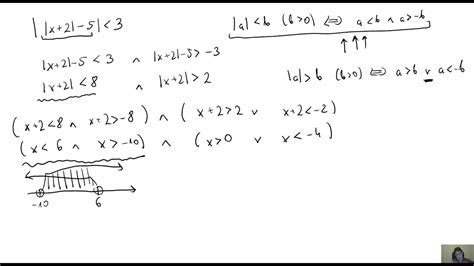 ||x+2|-5|<3
|a|<b (b>0) ⟺ a<b ∧ a>-b
|x+2|-5<3 ∧ |x+2|-5>-3
|x+2|<8 ∧ |x+2|>2
|a|>b (b>0) ⟺ a>b ∨ a<-b
(x+2<8 ∧ x+2>-8) ∧ (x+2>2 ∨ x+2<-2)
(x<6 ∧ x>-10) ∧ (x>0 ∨ x<-4)
-10 6